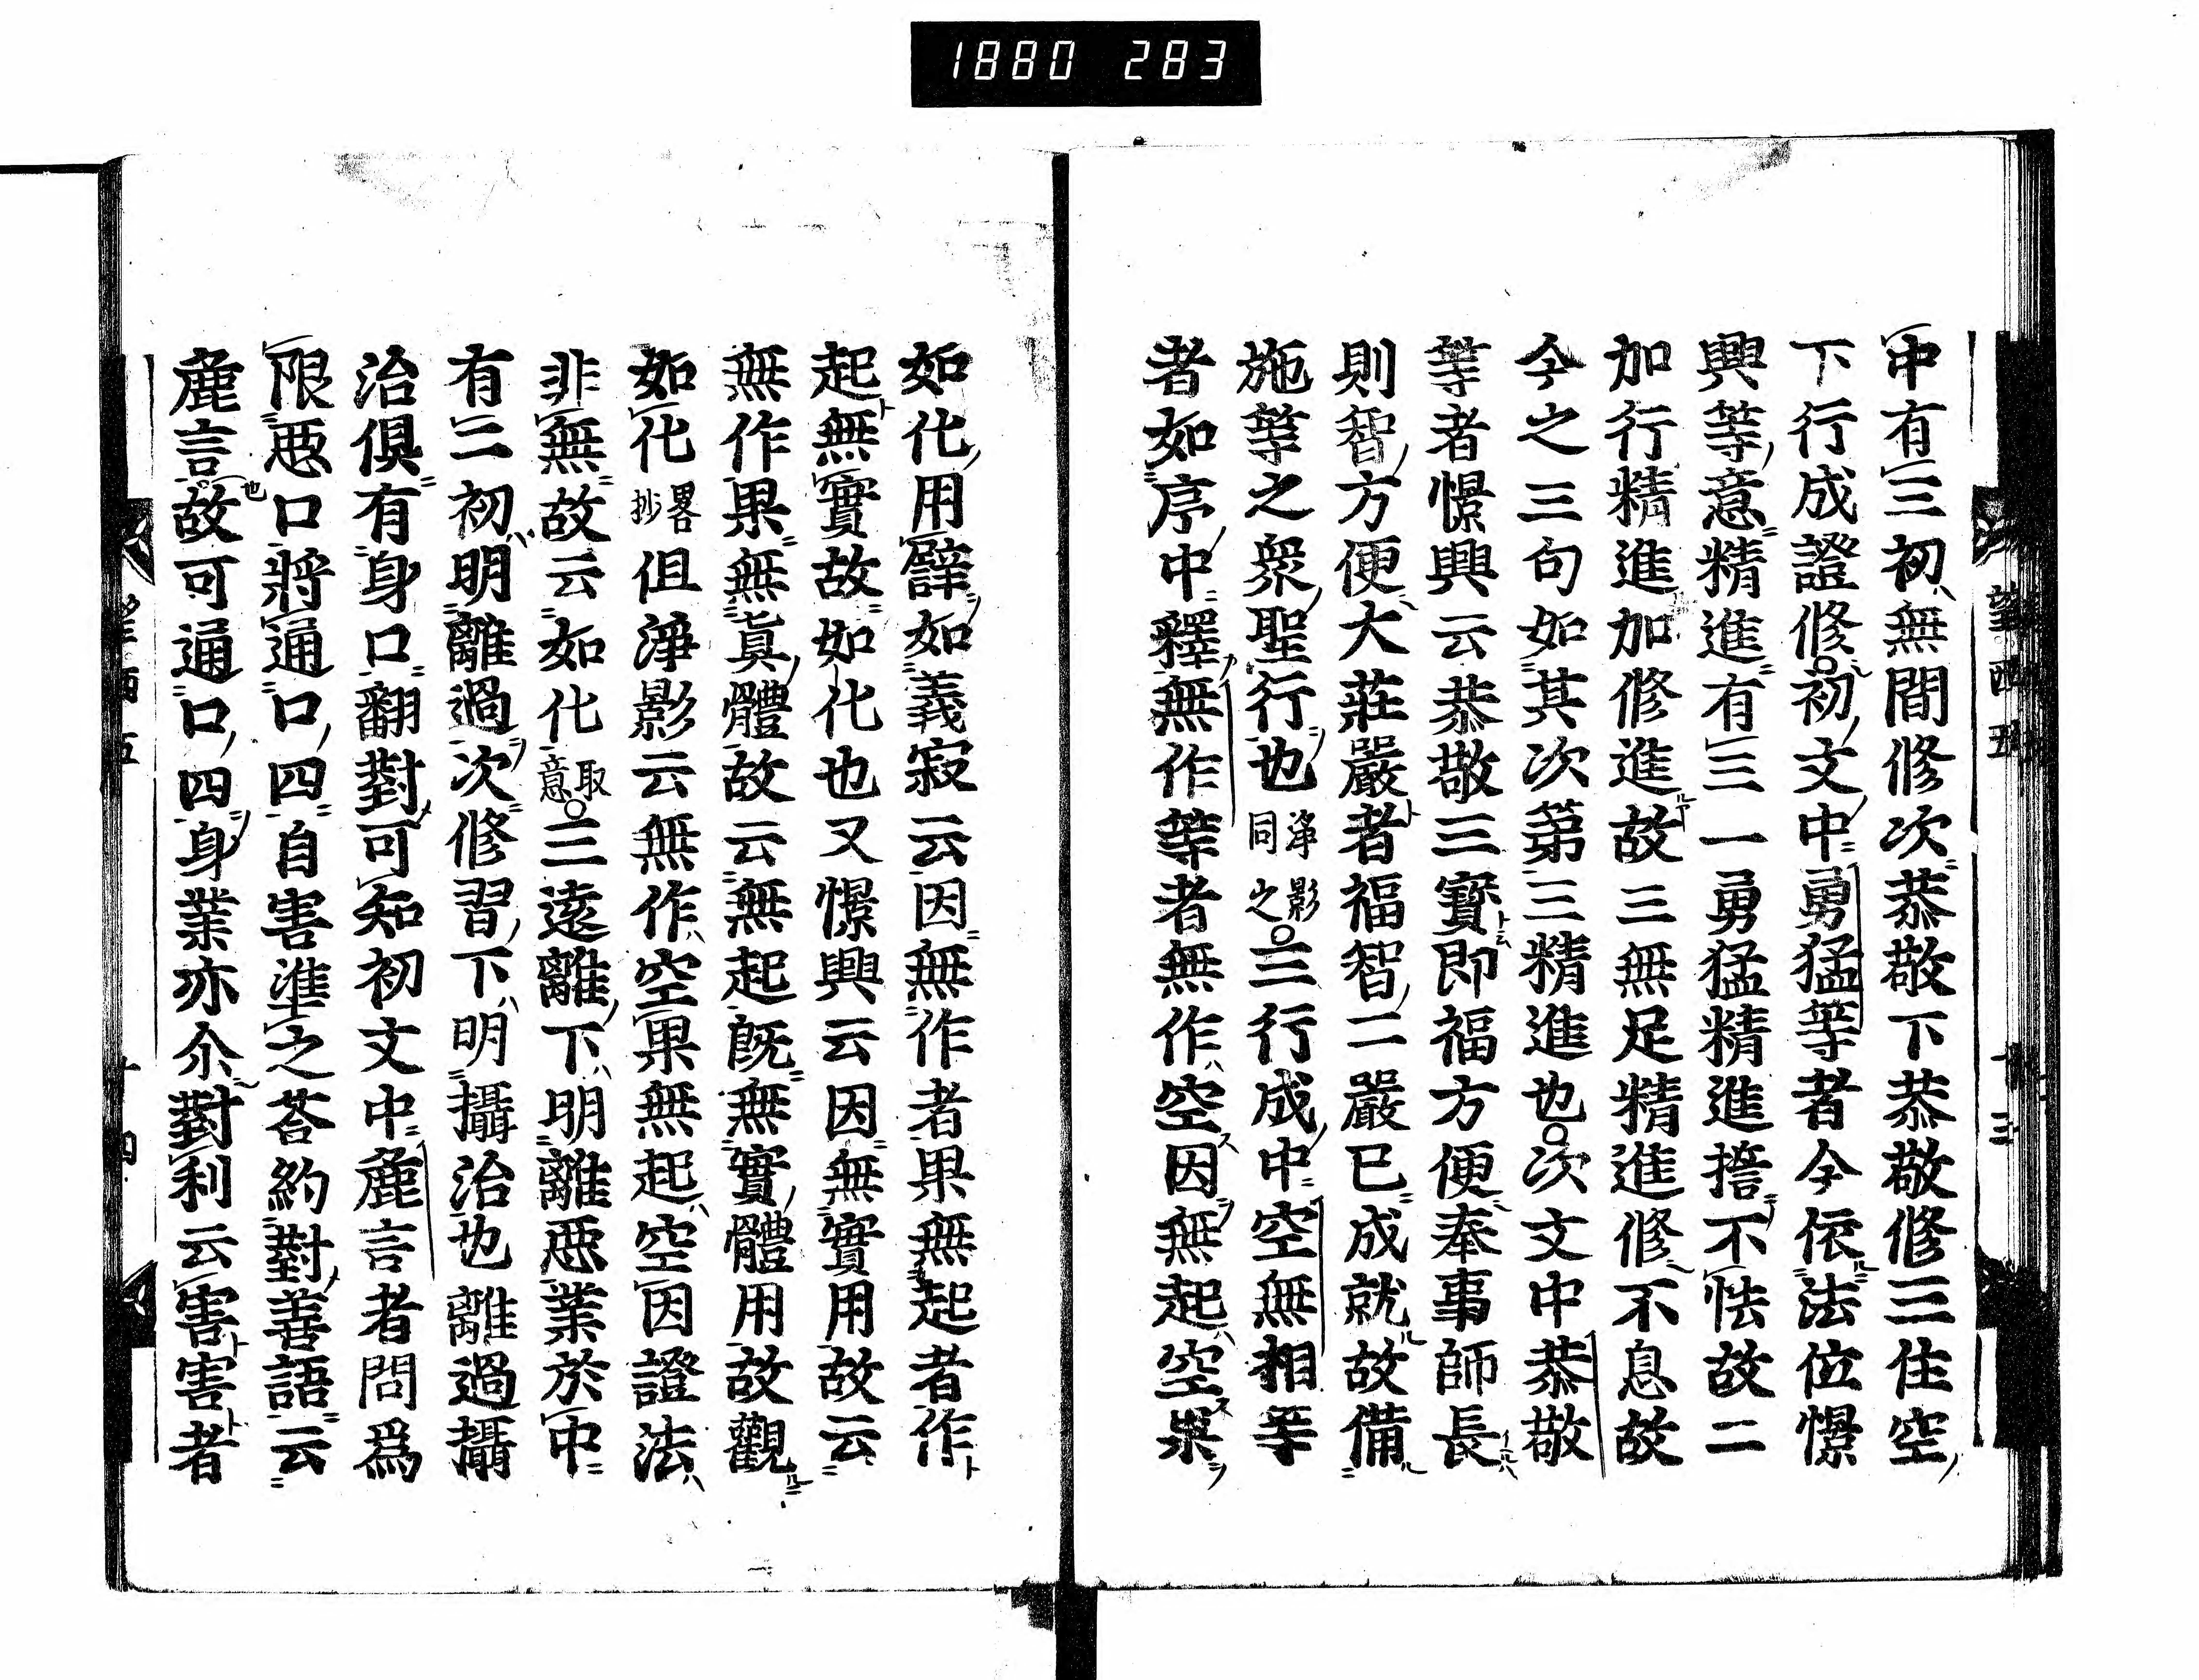 1880 283
中有三初無間修次恭敬下恭敬修三住空
下行成證修初文中勇猛等者今依法位憬
興等意精進有三一勇猛精進擔不怯故二
加行精進加修進故三無足精進修不息故
今之三句如其次第三精進也次文中恭敬
等者憬興云恭敬三寶即福方便奉事師長
則智方便大莊嚴者福智二嚴已成就故備
施等之衆聖行也淨影同之三行成中空無相等
者如序中釋無作等者無作空因無起空果
如化用譬如義寂云因無作者果無起者作
起無實故如化也又憬興云因無實用故云
無作果無眞體故云無起既無實體用故觀
如化畧抄但淨影云無作空果無起空因證法
非無故云如化取意三遠離下明離惡業於中
有二初明離過次修習下明攝治也離過攝
治俱有身口翻對可知初文中麁言者問爲
限惡口將通口四自害準之答約對善語云
麁言故可通口四身業亦尒對利云害害者
望西五
十三